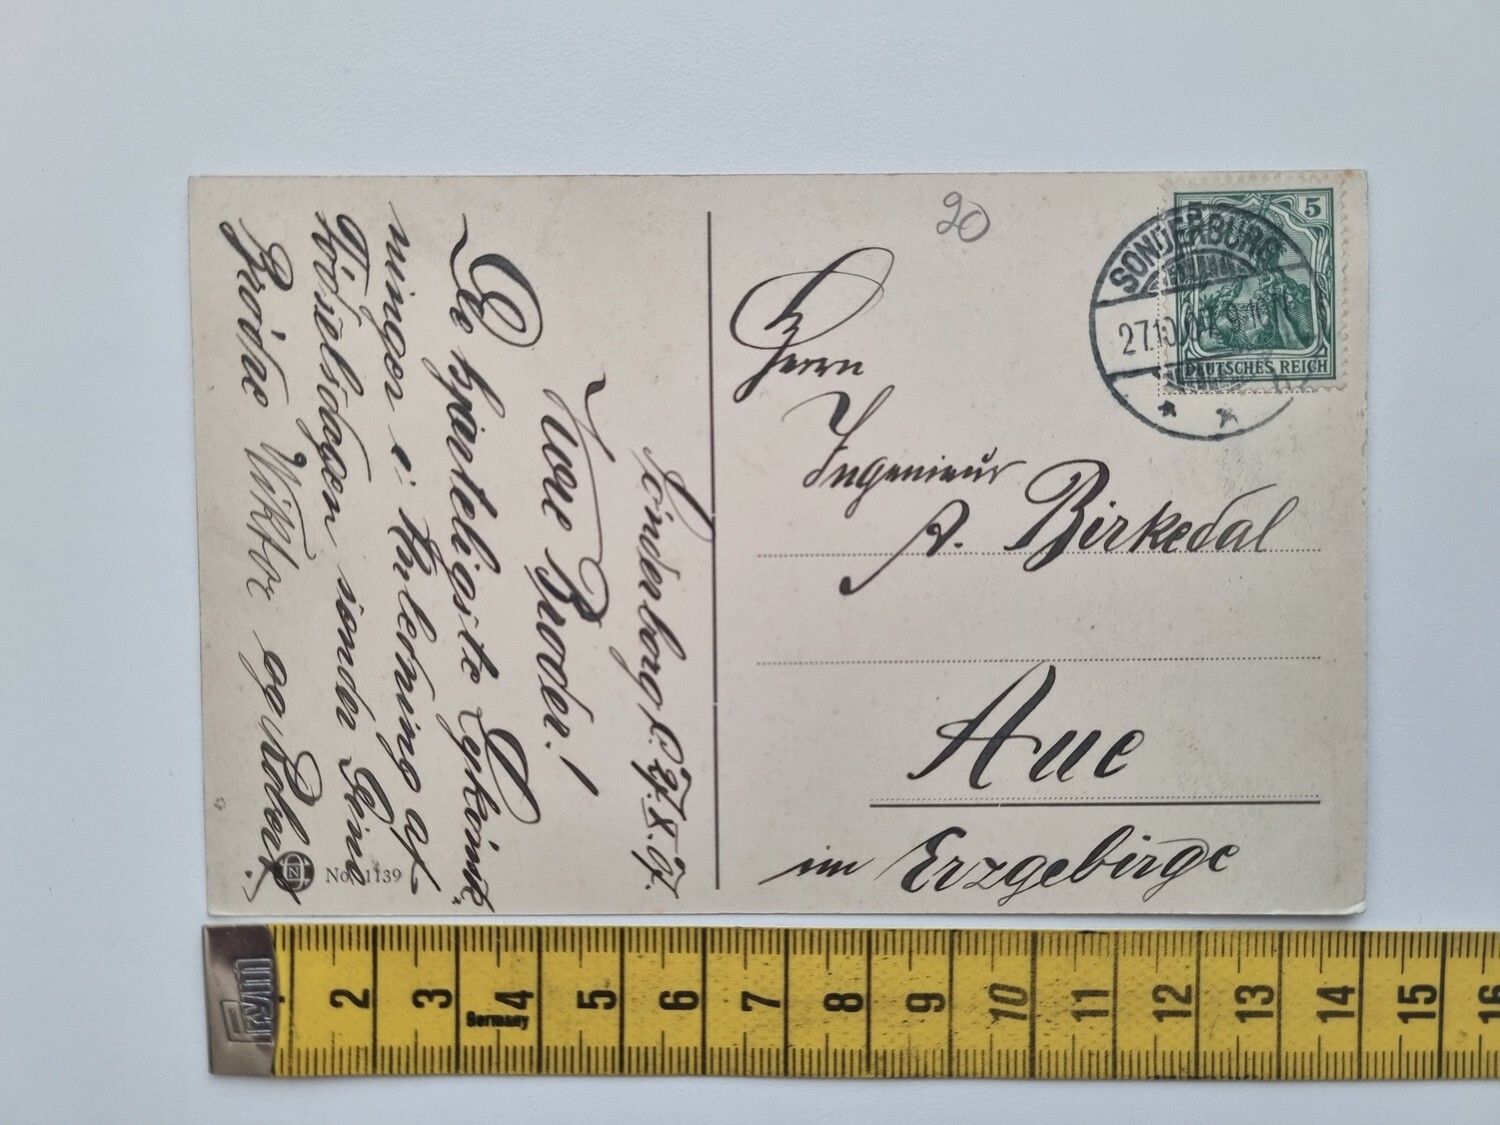 Sönderborg d. 27.X.07.
Kære Broder!
De hjærteligste Lykønsk-
ninger i Anledning af
Fødselsdagen sender Dine
Brødre Viktor og Peter.
No. 1139
20
Herrn
Ingenieur
A. Birkedal
Aue
im Erzgebirge
5
DEUTSCHES REICH
SONDERBURG
27.10.07. 9-10N
Germany
2 3 4 5 6 7 8 9 10 11 12 13 14 15 16